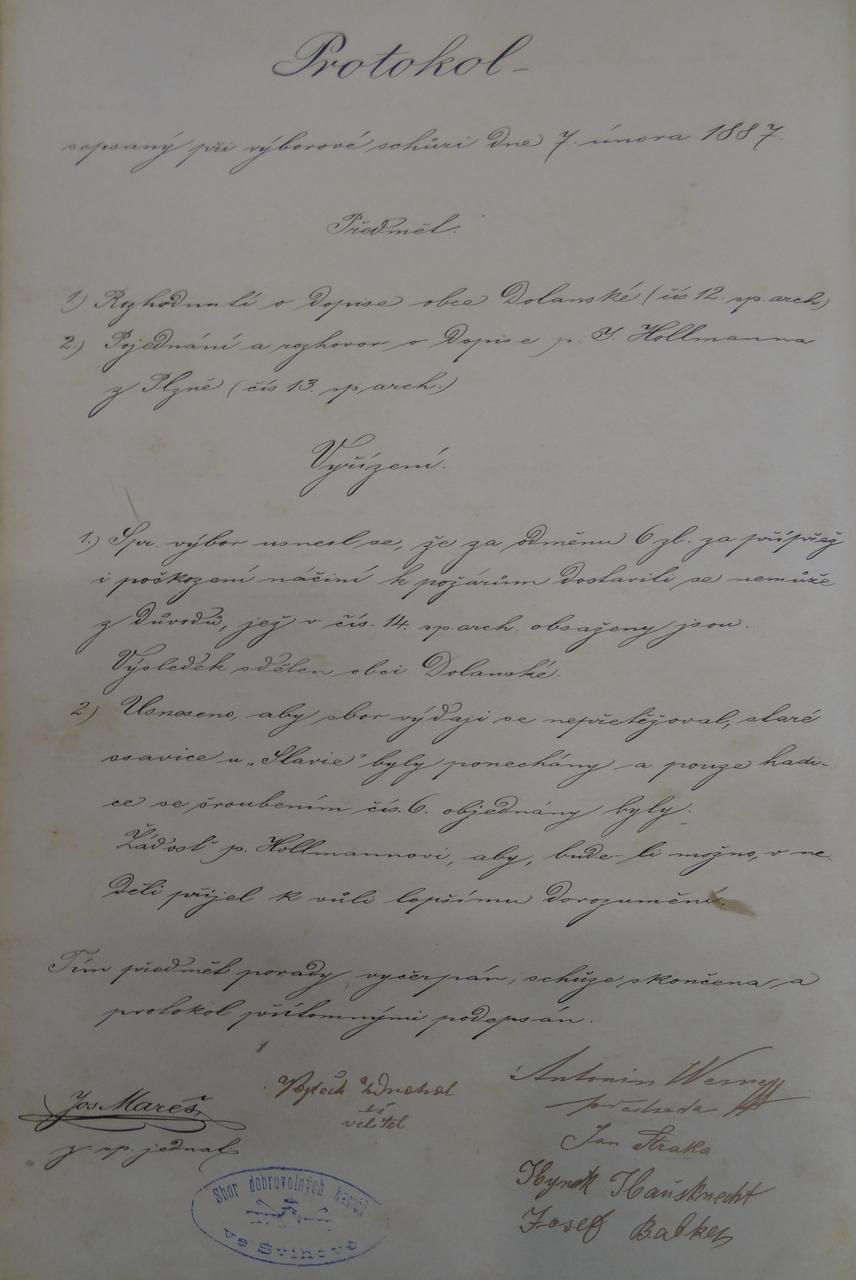 Protokol
sepsaný při výborové schůzi dne 7. února 1887.
Předmět.
1.) Rozhodnutí o dopise obce Dolanské (čís 12. sp. arch.)
2.) Pojednání a rozhovor o dopise p. J. Hollmanna
z Plzně (čís 13. sp. arch.)
Vyřízení.
1.) Spr. výbor usnesl se, že za odměnu 6 zl. za přípřež
i poškození náčiní k požárům dostaviti se nemůže
z důvodů, jež v čís. 14. sp. arch. obsaženy jsou.
Výsledek sdělen obci Dolanské.
2.) Usneseno, aby sbor výdaji se nepřetěžoval, staré
ssavice u „Slavie" byly ponechány a pouze hadi-
ce se šroubením čís. 6. objednány byly.
Žádosť p. Hollmannovi, aby, bude-li možno, v ne-
děli přijel k vůli lepšímu dorozumění.
Tím předmět porady vyčerpán, schůze skončena a
protokol přítomnými podepsán.
Jos. Mareš,
sp. jednatel
Vojtěch
velitel
Antonín
předseda
Jan Straka
Hynek Hausknecht
Josef
Sbor dobrovolných hasičů
ve Švihově